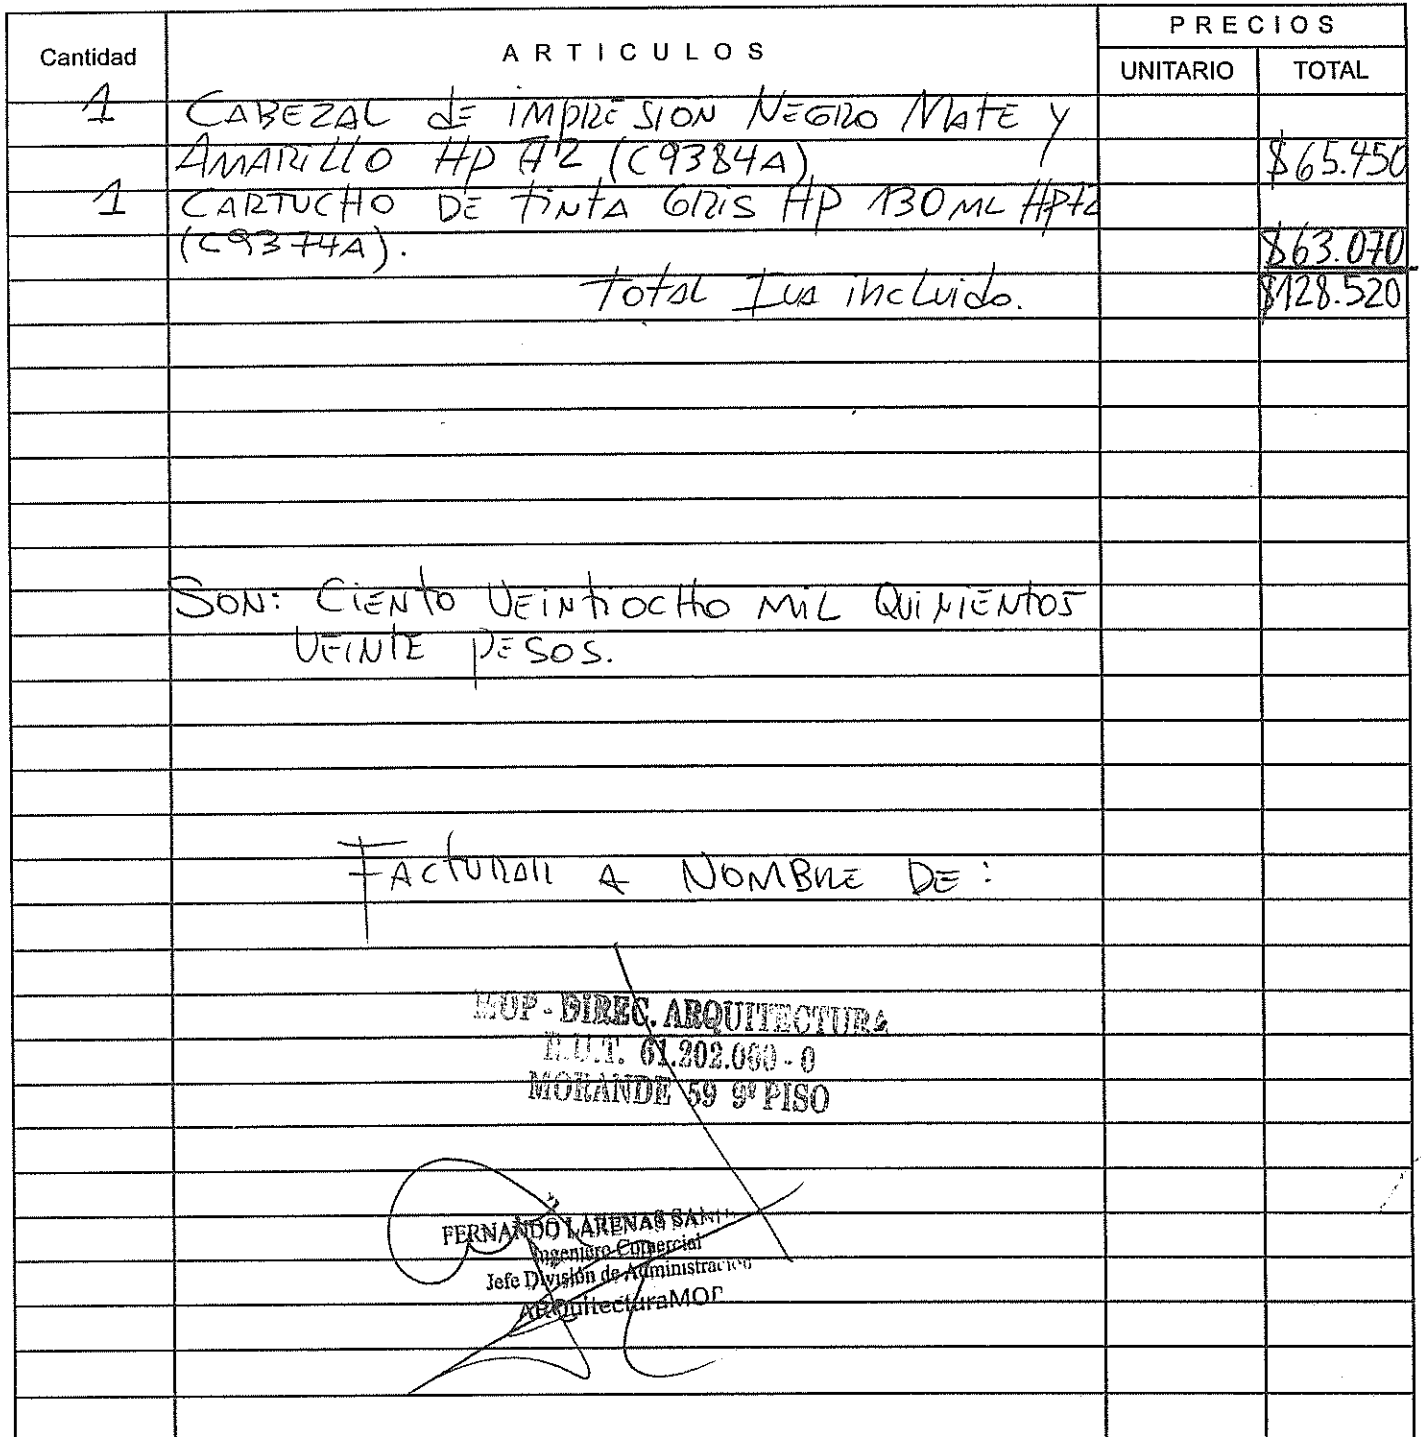 PRECIOS
Cantidad ARTICULOS UNITARIO TOTAL
1 CABEZAL dE iMPRESION NEGRO MATE Y
AMARILLO HP 72 (C9384A) $65.450
1 CARTUCHO DE TINTA GRIS HP 130 ML HP72
(C9374A). $63.070
Total IVA incluido. $128.520
SON: CIENTO VEINTIOCHO MIL QUINIENTOS
VEINTE PESOS.
FACTURAR A NOMBRE DE:
MOP - DIREC. ARQUITECTURA
R.U.T. 61.202.000 - 0
MORANDE 59 9º PISO
FERNANDO LARENAS
Ingeniero Comercial
Jefe División de Administración
ARQuitecturaMOP